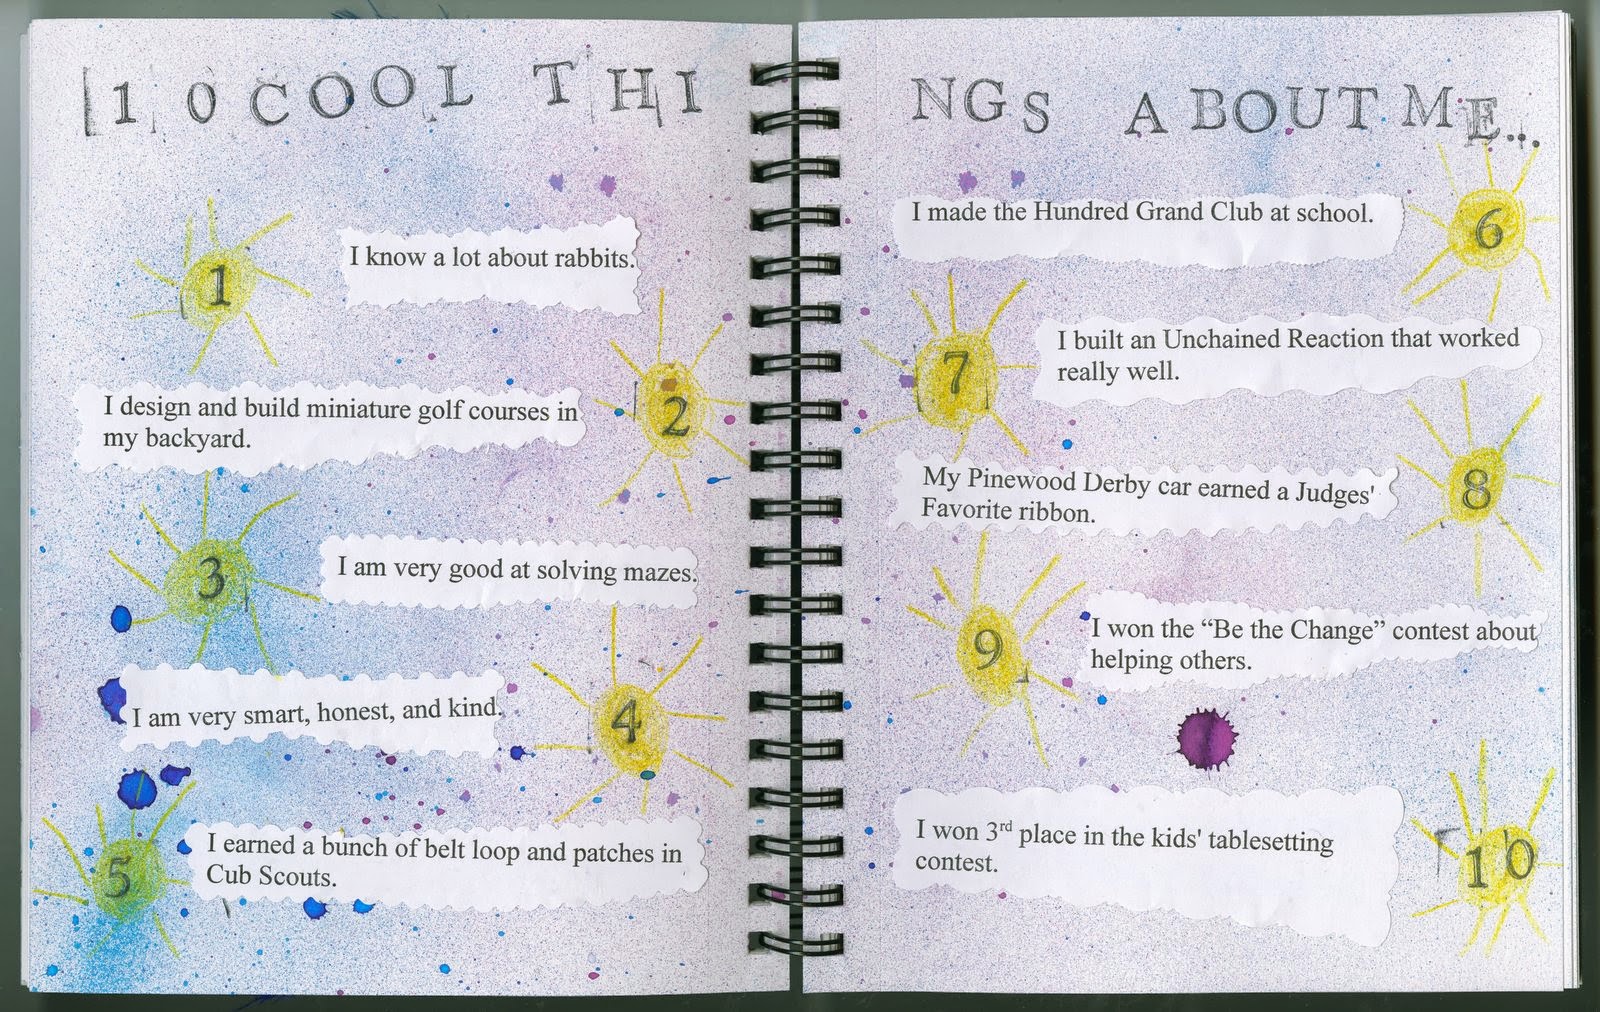 10 COOL THINGS ABOUT ME...
1
I know a lot about rabbits.
2
I design and build miniature golf courses in
my backyard.
3
I am very good at solving mazes.
4
I am very smart, honest, and kind.
5
I earned a bunch of belt loop and patches in
Cub Scouts.
6
I made the Hundred Grand Club at school.
7
I built an Unchained Reaction that worked
really well.
8
My Pinewood Derby car earned a Judges'
Favorite ribbon.
9
I won the “Be the Change” contest about
helping others.
10
I won 3rd place in the kids' tablesetting
contest.